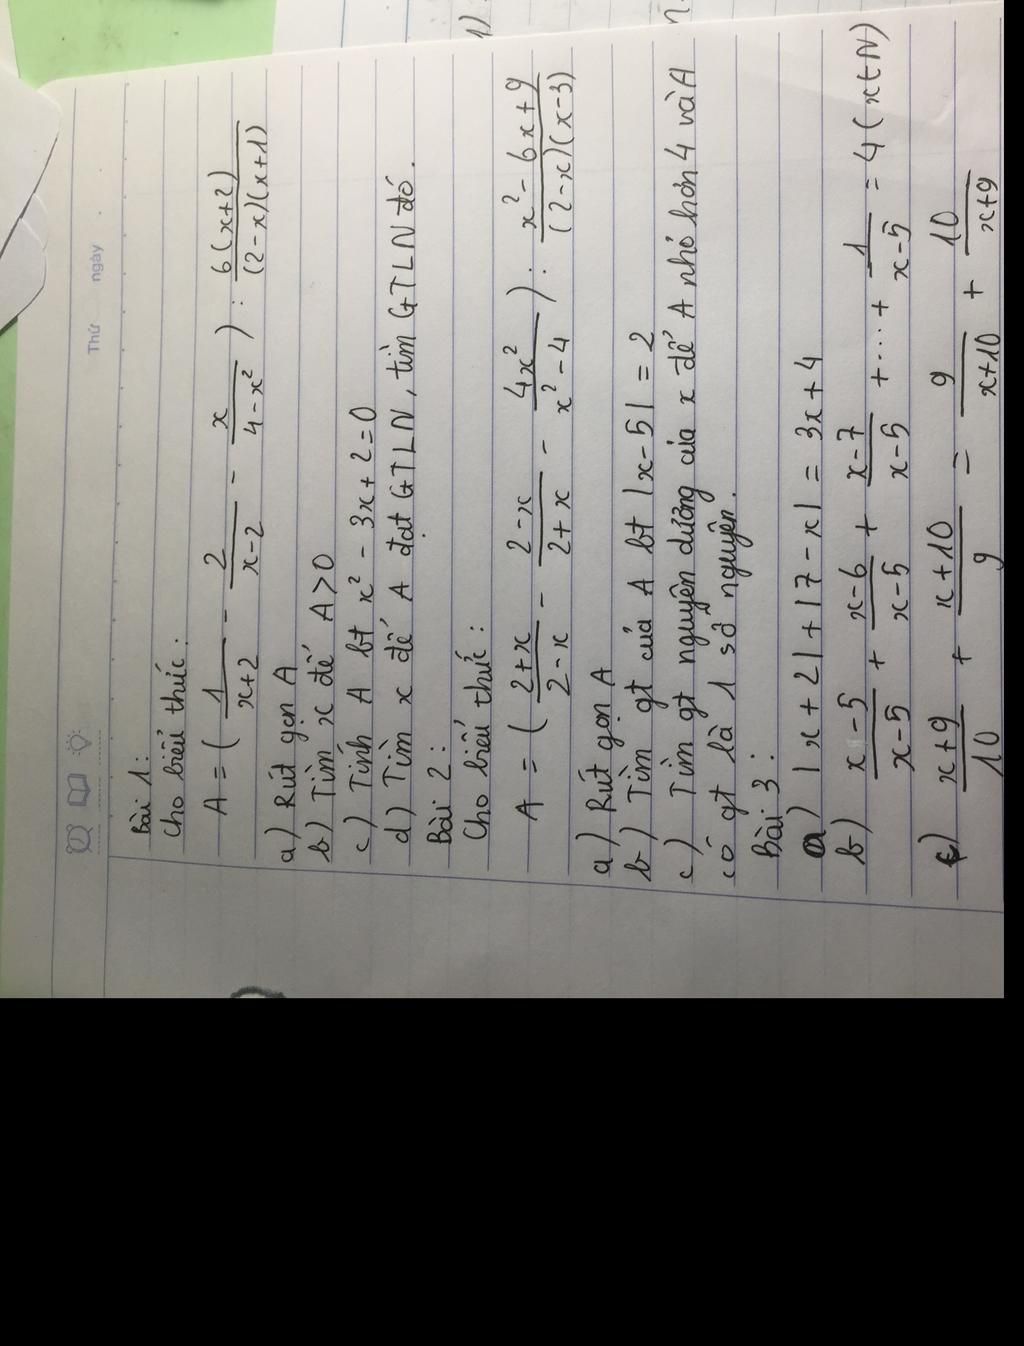 Thứ ngày
Bài 1:
Cho biểu thức:
A = ( 1/(x+2) - 2/(x-2) - x/(4-x²) ) : 6(x+2)/((2-x)(x+1))
a) Rút gọn A
b) Tìm x để A>0
c) Tính A bt x² - 3x + 2 = 0
d) Tìm x để A đạt GTLN, tìm GTLN đó.
Bài 2:
Cho biểu thức:
A = ( (2+x)/(2-x) - (2-x)/(2+x) - 4x²/(x²-4) ) : (x²-6x+9)/((2-x)(x-3))
a) Rút gọn A
b) Tìm gt của A bt |x-5| = 2
c) Tìm gt nguyên dương của x để A nhỏ hơn 4 và A
có gt là 1 số nguyên.
Bài 3:
a) |x+2| + |7-x| = 3x+4
b) (x-5)/(x-5) + (x-6)/(x-5) + (x-7)/(x-5) + .... + 1/(x-5) = 4 (x∈N)
c) (x+9)/10 + (x+10)/9 = 9/(x+10) + 10/(x+9)